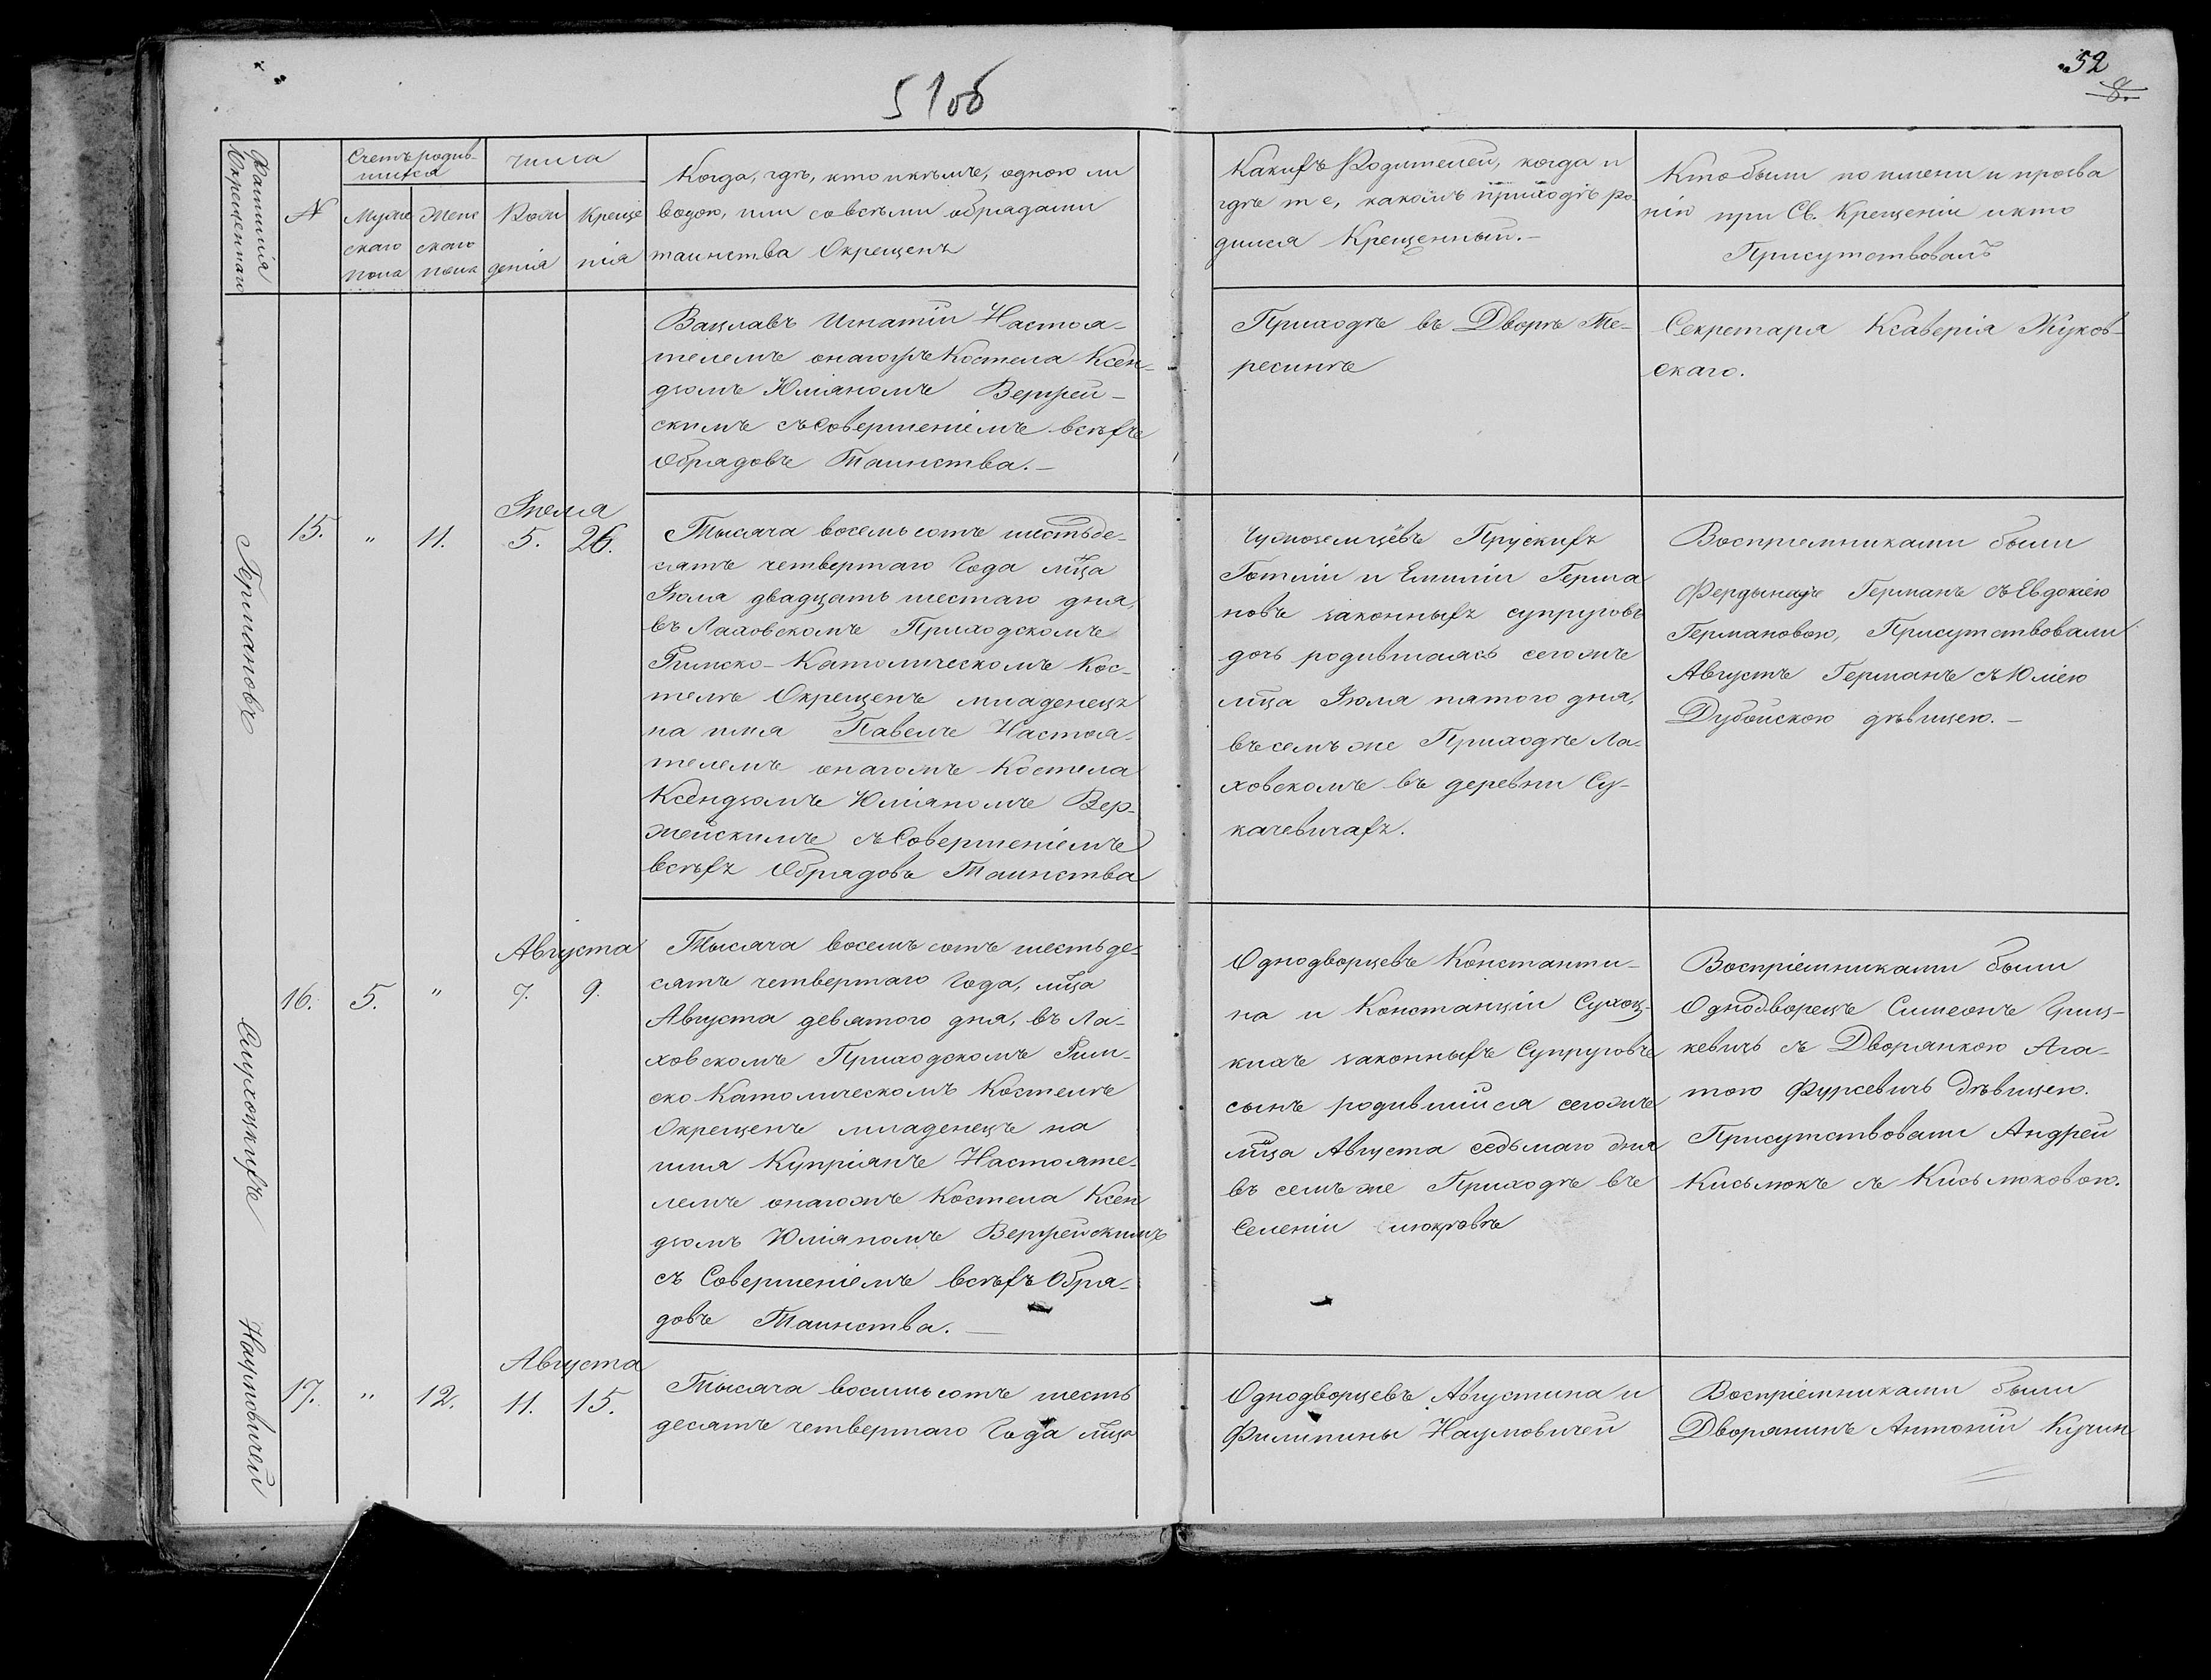 51об
52
8.
Фамилія Окрещеннаго
N
Счетъ родив-
шихся
Муже
скаго
пола
Жен
скаго
пола
Числа
Рож
денія
Креще
нія
Когда, гдѣ, кто и кѣмъ, одною ли
водою, или со всѣми обрядами
таинства Окрещенъ
Какихъ Родителей, когда и
гдѣ т е, какомъ приходѣ ро
дился Крещенный.-
Кто были по имени и прозва
нію при Св. Крещеніи и кто
Присутствовалъ
Вацлавъ Игнатій Настоя-
телемъ онагожъ Костела Ксен-
дзомъ Юліаномъ Вержей-
скимъ съ Совершеніемъ всѣхъ
Обрядовъ Таинства.-
Приходѣ въ Дворѣ Те-
ресинѣ
Секретаря Ксаверія Жуков-
скаго.
Германовъ
15.
"
11.
Іюля
5.
26.
Тысяча восемь сотъ шестьде-
сятъ четвертаго Года мца
Іюля двадцать шестаго дня,
въ Лаховскомъ Приходскомъ
Римско-Католическомъ Кос-
телѣ Окрещенъ младенецъ
на имя Павелъ Настоя-
телемъ онагожъ Костела
Ксендзомъ Юліяномъ Вер-
жейскимъ съ Совершеніемъ
всѣхъ Обрядовъ Таинства
Чужоземцевъ Прускихъ
Готліи и Емиліи Герма
новъ законныхъ супруговъ
дочь родившаясь сегожъ
мца Іюля пятого дня,
въ семъ же Приходѣ Ла-
ховскомъ въ деревни Су-
качевичахъ.
Воспріемниками были
Фердынадъ Германъ съ Евдокіею
Германовою, Присутствовали
Августъ Германъ съ Юліею
Дубойскою дѣвицею.-
Сухоцкихъ
16.
5.
"
Августа
7.
9.
Тысяча восемь сотъ шестьде-
сятъ четвертаго Года, мца
Августа девятого дня, въ Ла-
ховскомъ Приходскомъ Рим-
ско Католическомъ Костелѣ
Окрещенъ младенецъ на
имя Купріянъ Настояте-
лемъ онагожъ Костела Ксен
дзомъ Юліяномъ Вержейскимъ
съ Совершеніемъ всѣхъ Обря-
довъ Таинства.-
Однодворцевъ Константи-
на и Констанціи Сухоц-
кихъ законныхъ Супруговъ
сынъ родившійся сегожъ
мца Августа седьмаго дня
въ семъ же Приходѣ въ
Селеніи
Воспріемниками были
Однодворецъ Симеонъ Гриц-
кевичъ съ Дворянкою Ага-
тою Фурсевичъ дѣвицею.
Присутствовали Андрей
Кисьлюкъ съ Кисьлюковою.
Наумовичей
17.
"
12.
Августа
11.
15.
Тысяча восемь сотъ шесть
десятъ четвертаго Года мца
Однодворцевъ Августина и
Филипины Наумовичей
Воспріемниками были
Дворянинъ Антоній Кучин